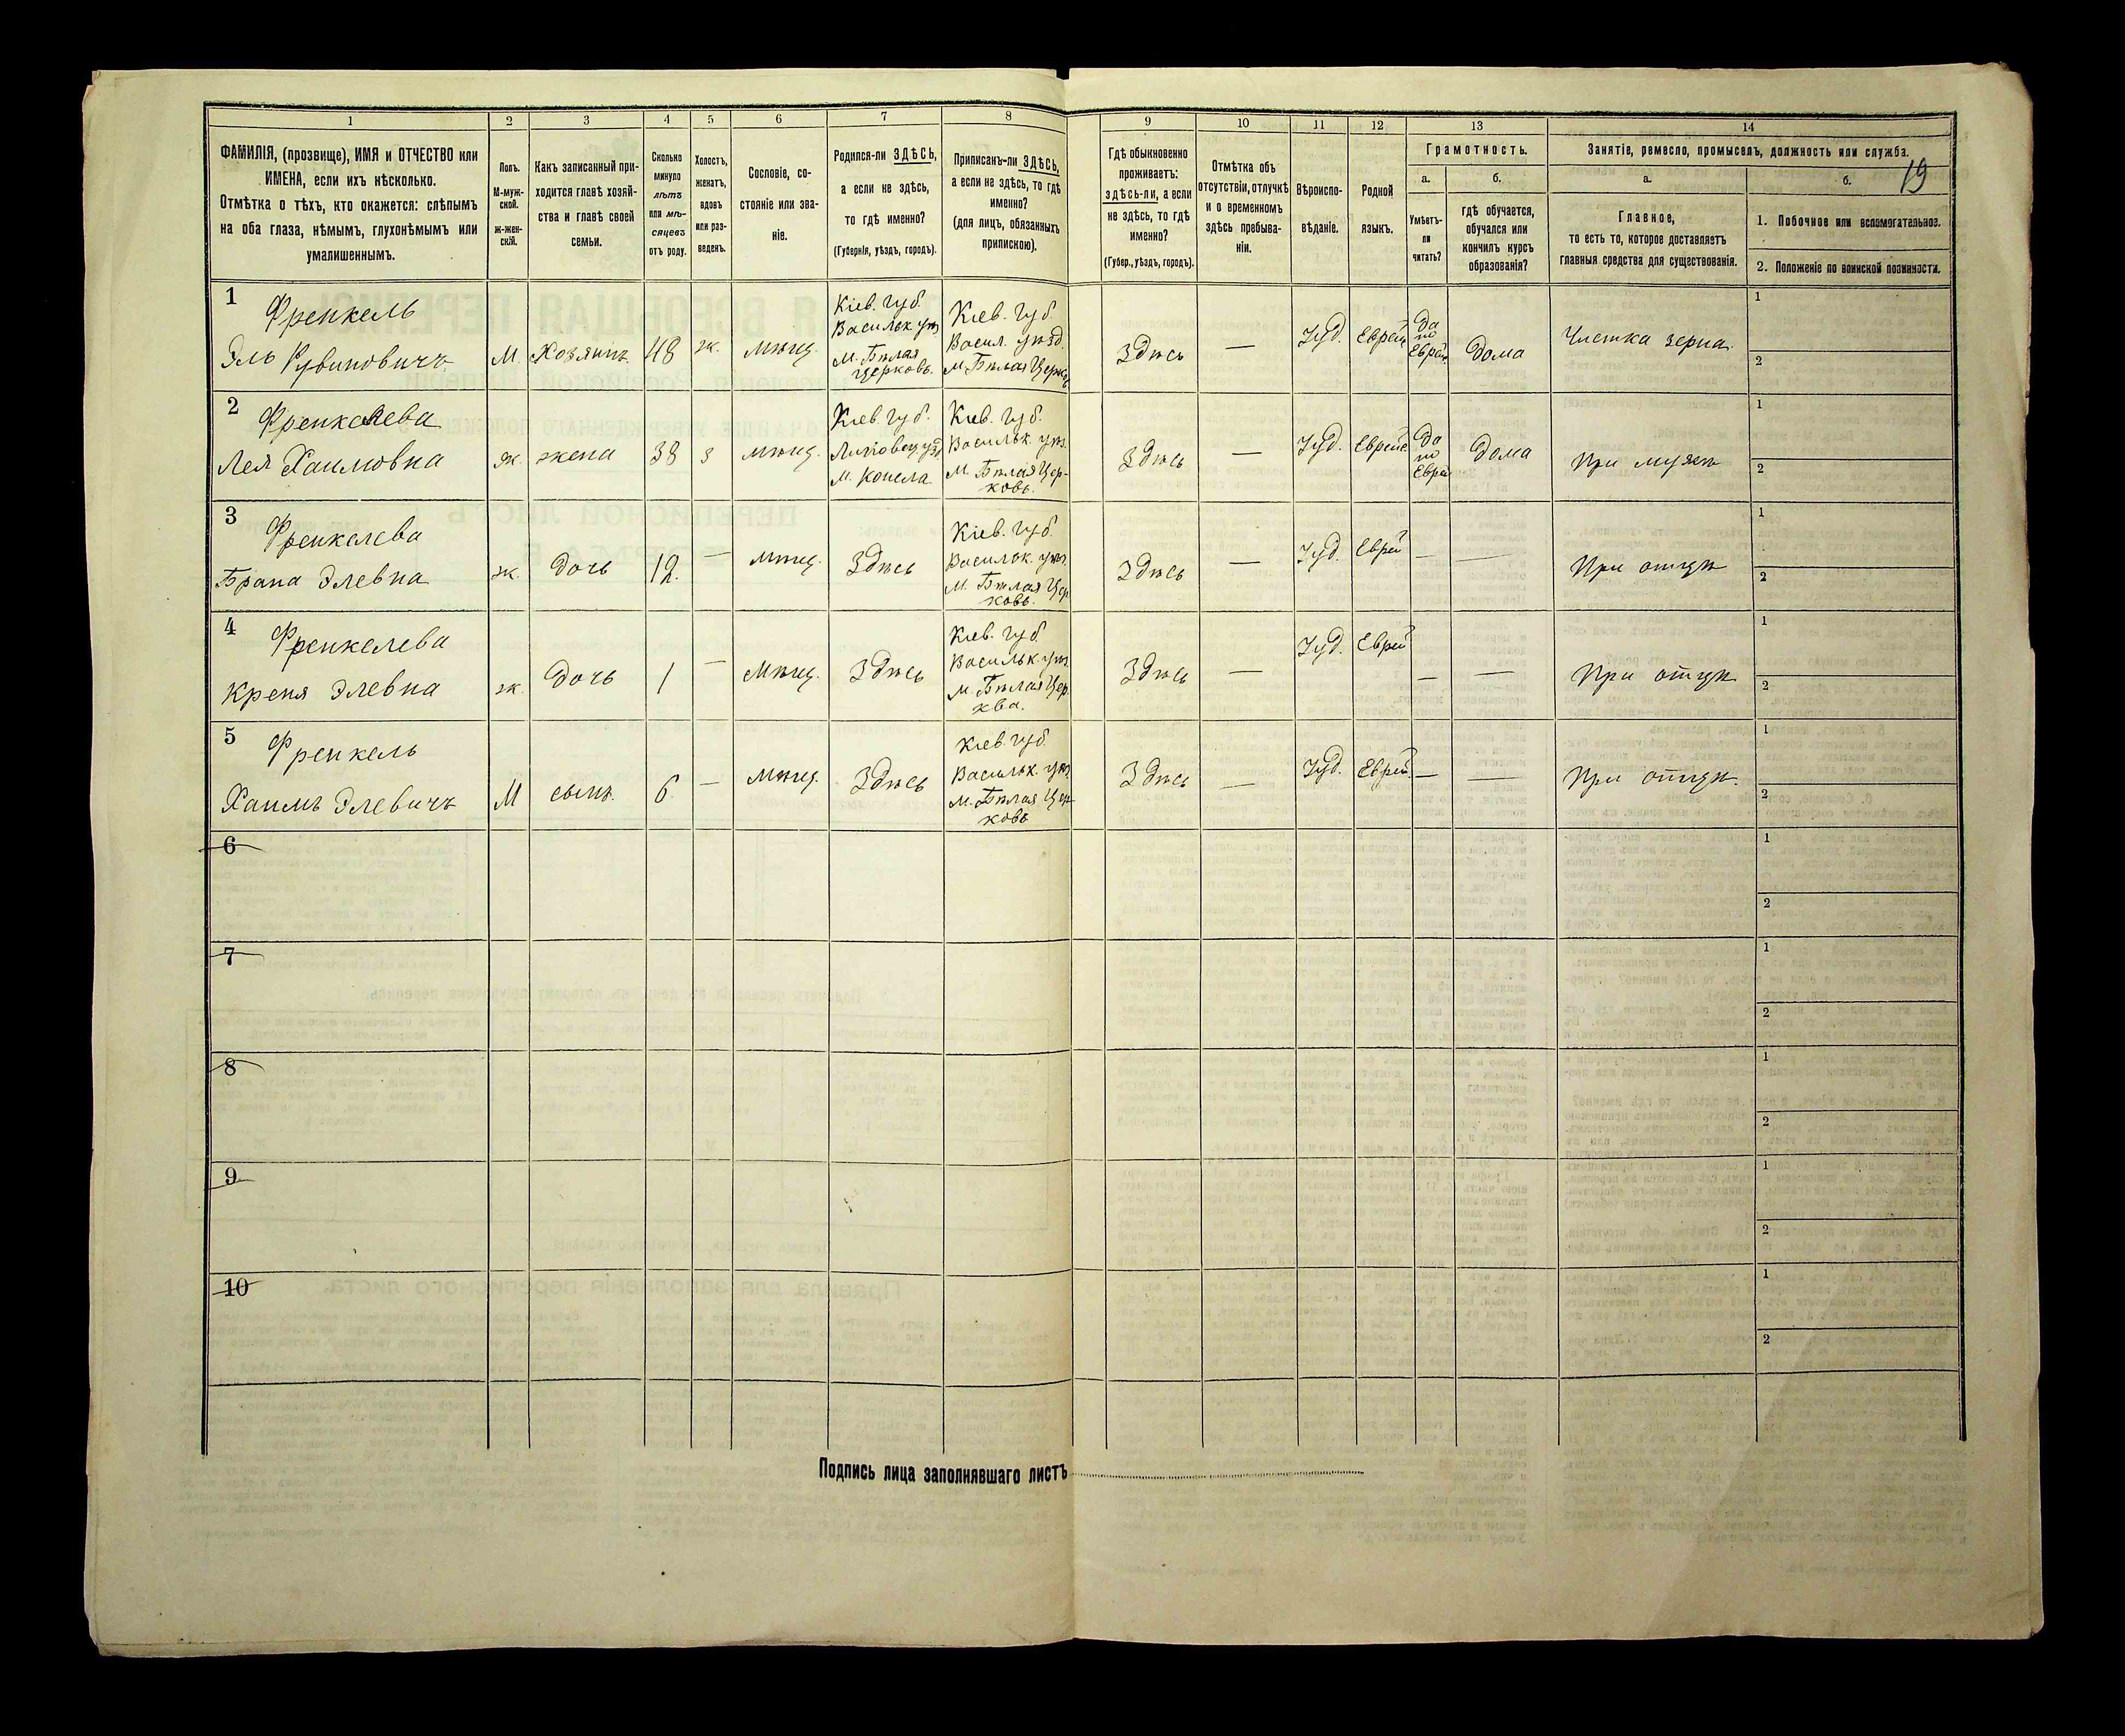 1
2
3
4
5
6
7
8
9
10
11
12
13
14
ФАМИЛІЯ, (прозвище), ИМЯ и ОТЧЕСТВО или
ИМЕНА, если ихъ нѣсколько.
Отмѣтка о тѣхъ, кто окажется: слѣпымъ
на оба глаза, нѣмымъ, глухонѣмымъ или
умалишеннымъ.
Полъ.
М-муж-
ской.
ж-жен-
скій.
Какъ записанный при-
ходится главѣ хозяй-
ства и главѣ своей
семьи.
Сколько
минуло
лѣтъ
или мѣ-
сяцевъ
отъ роду.
Холостъ,
женатъ,
вдовъ
или раз-
веденъ.
Сословіе, со-
стояніе или зва-
ніе.
Родился-ли ЗДѢСЬ,
а если не здѣсь,
то гдѣ именно?
(Губернія, уѣздъ, городъ).
Приписанъ-ли ЗДѢСЬ,
а если не здѣсь, то гдѣ
именно?
(для лицъ, обязанныхъ
припискою).
Гдѣ обыкновенно
проживаетъ:
здѣсь-ли, а если
не здѣсь, то гдѣ
именно?
(Губер., уѣздъ, городъ).
Отмѣтка объ
отсутствіи, отлучкѣ
и о временномъ
здѣсь пребыва-
ніи.
Вѣроиспо-
вѣданіе.
Родной
языкъ.
Грамотность.
а.
Умѣетъ-
ли
читать?
б.
гдѣ обучается,
обучался или
кончилъ курсъ
образованія?
Занятіе, ремесло, промыселъ, должность или служба.
19
а.
Главное,
то есть то, которое доставляетъ
главныя средства для существованія.
б.
1. Побочное или вспомогательное.
2. Положеніе по воинской повинности.
1
Френкель
Эль Рувиновичъ
М.
Хозяинъ
48
ж.
мѣщ.
Кіев. Губ.
Васильк. уѣз
М. Бѣлая
Церковь.
Кіев. Губ.
Васил. уѣзд.
М. Бѣлая Церков
Здѣсь
—
Іуд.
Еврей.
Да
по
Еврей.
дома
Чистка зерна.
1
2
2
Френкелева
Лея Хаимовна
ж.
жена
38
з
мѣщ.
Кіев. Губ.
Липовец. уѣзд
М. Конела
Кіев. Губ.
Васильк. уѣз.
М. Бѣлая Цер-
ковь.
Здѣсь
—
Іуд.
Еврей.
Да
по
Еврей
дома
При мужѣ
1
2
3
Френкелева
Брана Элевна
ж.
дочь
12.
—
мѣщ.
Здѣсь
Кіев. Губ.
Васильк. уѣз.
М. Бѣлая Цер
ковь.
Здѣсь
—
Іуд.
Еврей
—
—
При отцѣ
1
2
4
Френкелева
Креня Элевна
ж.
дочь
1
—
Мѣщ.
Здѣсь
Кіев. Губ.
Васильк. уѣз.
М. Бѣлая Цер.
ква.
Здѣсь
—
Іуд.
Еврей
—
—
При отцѣ
1
2
5
Френкель
Хаимъ Элевичъ
М
сынъ.
6.
—
Мѣщ.
Здѣсь
Кіев. Губ.
Васильк. уѣз.
М. Бѣлая Цер
ковь
Здѣсь
—
Іуд.
Еврей
—
—
При отцѣ.
1
2
6
1
2
7
1
2
8
1
2
9
1
2
10
1
2
Подпись лица заполнявшаго листъ